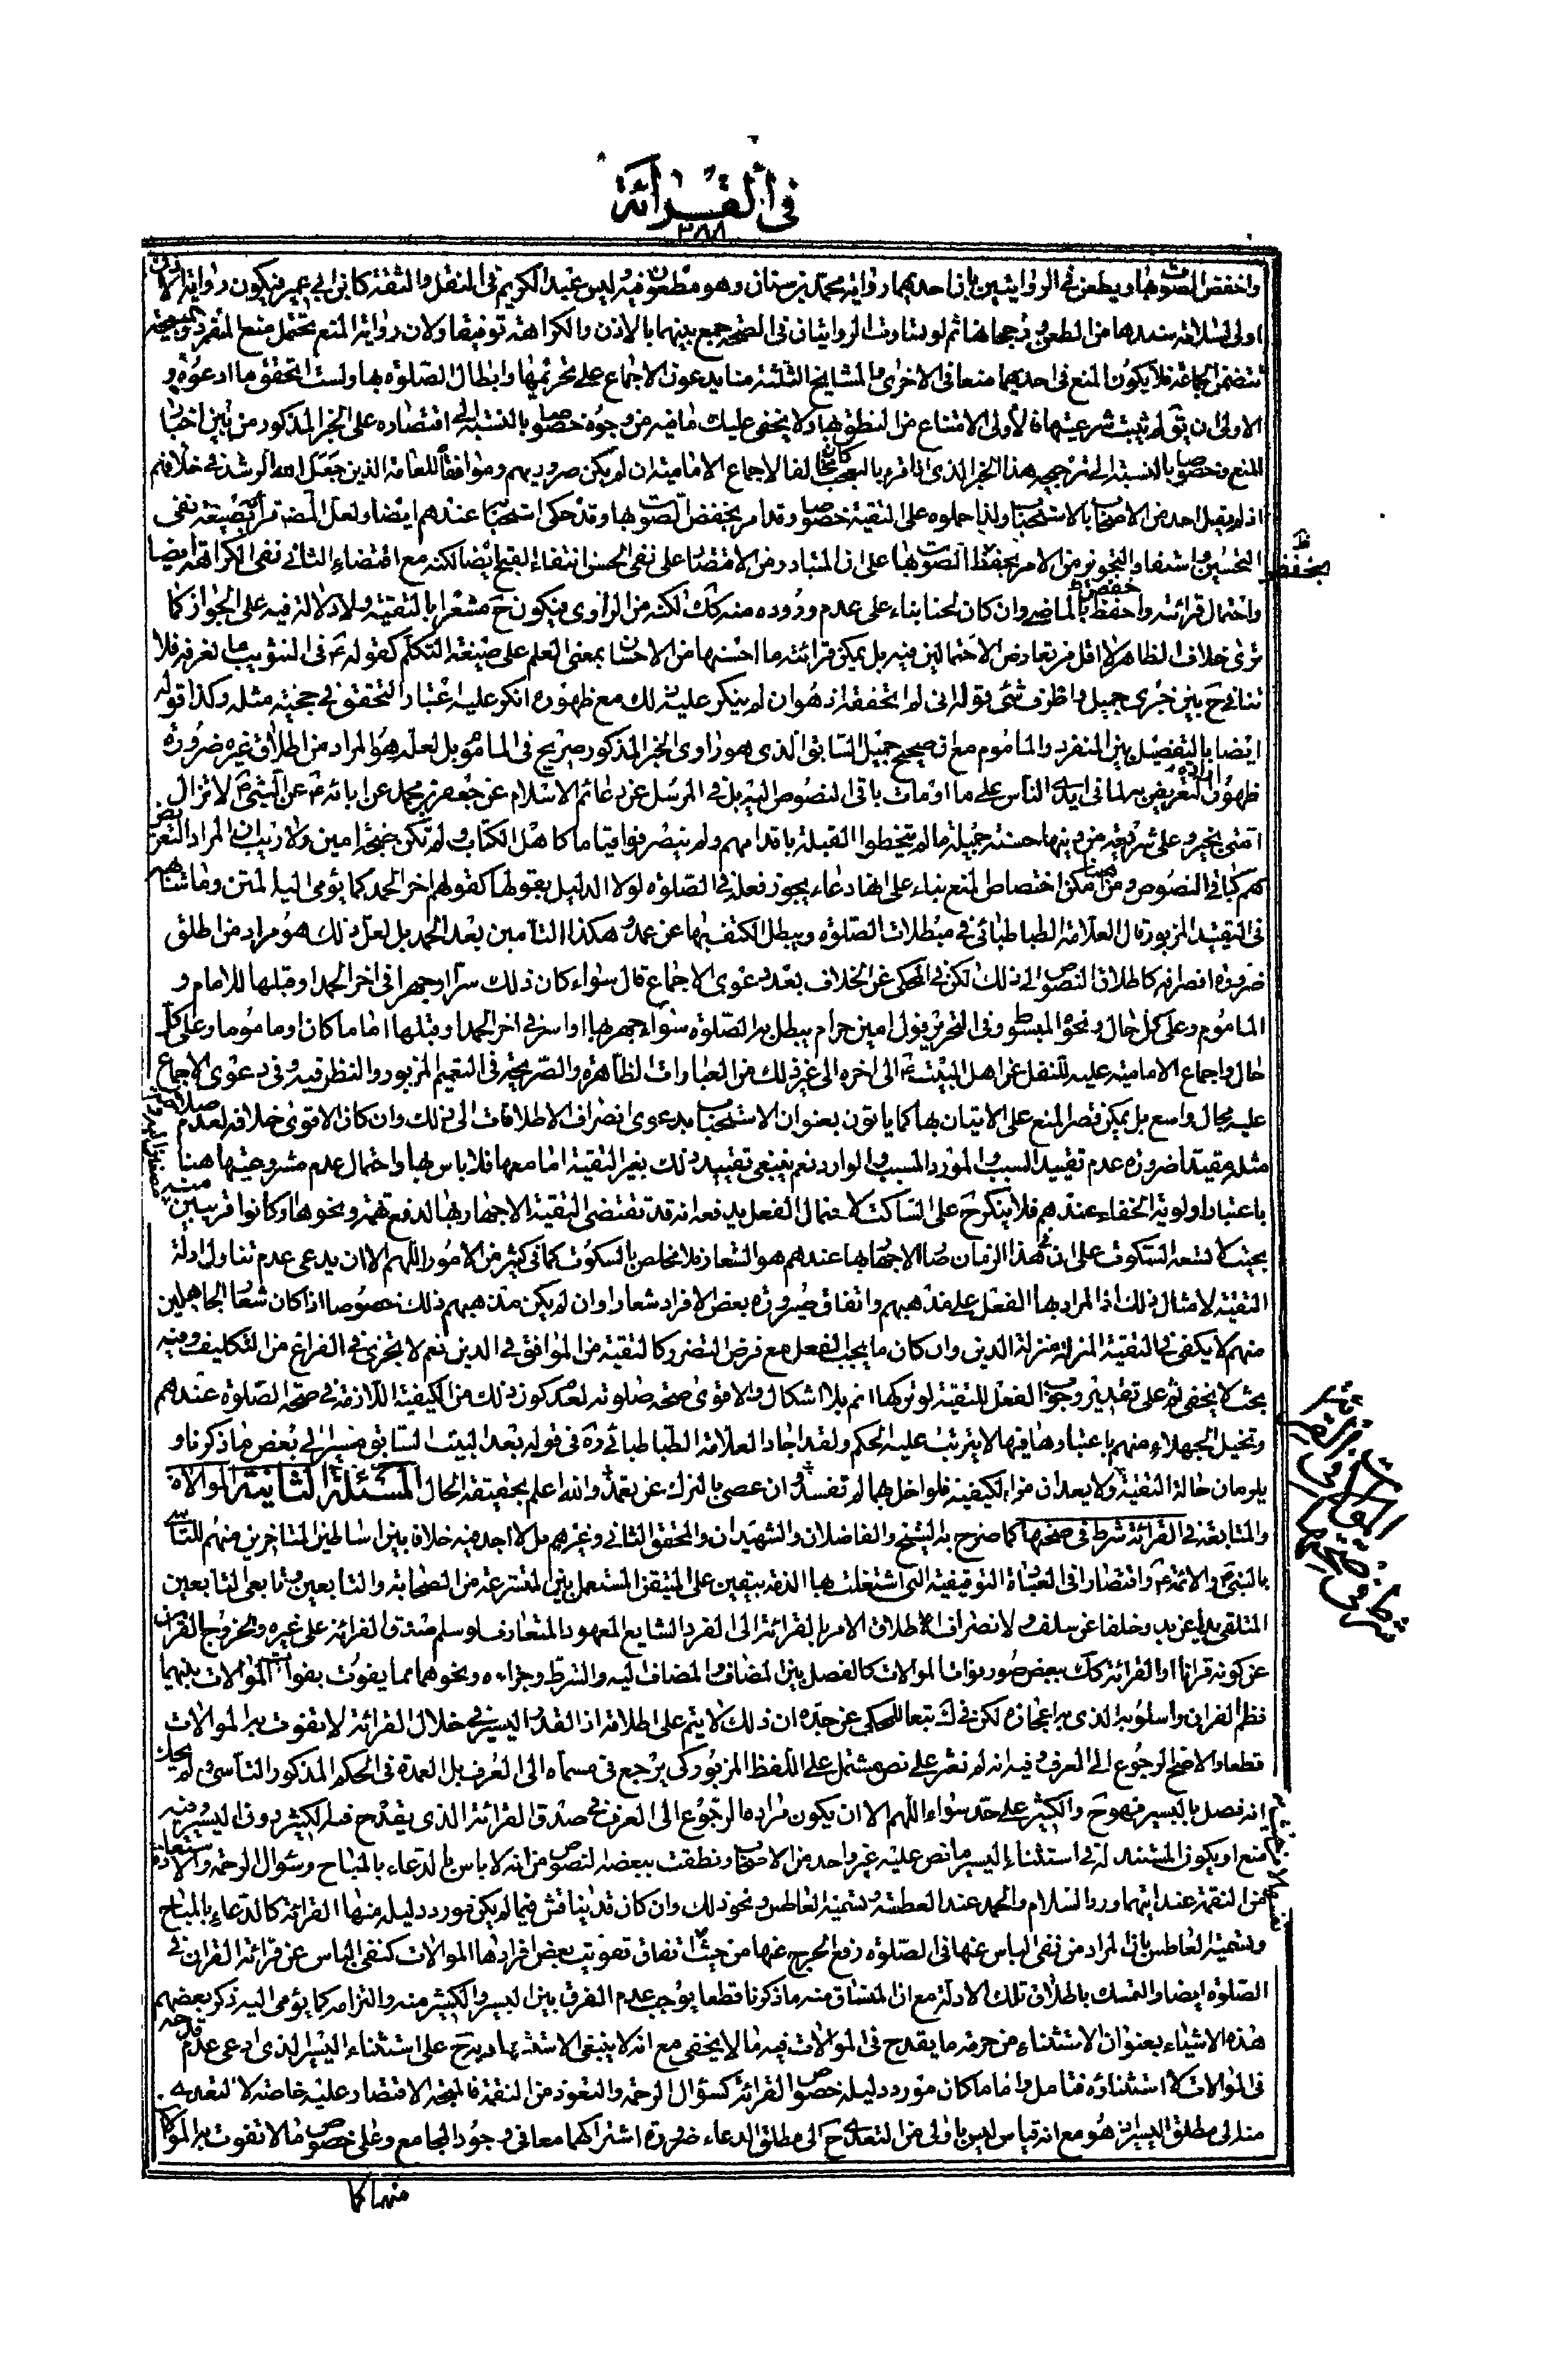 في القرائة
٣٨٨
واخفض الصوت بها ويطعن في الروايتين بان احديهما رواية محمد بن سنان وهو مطعون فيه ليس عبد الكريم في النقل والثقة كابن ابي عمير فيكون رواية الاذن
اولى لسلامة سندها من الطعن ورجحانها ثم لو تساوت الروايتان في الصحة جمع بينهما بالاذن والكراهة توفيقا ولان رواية المنع تحتمل منع المنفرد والمبيحة
تتضمن الجماعة فلا يكون المنع في احديهما منعا في الاخرى والمشايخ الثلثة منا يدعون الاجماع على تحريمها وابطال الصلوة بها ولست اتحقق ما ادعوه و
الاولى ان يق لم يثبت شرعيتها فالأولى الامتناع من النطق بها ولا يخفى عليك ما فيه من وجوه خصوصا بالنسبة الى اقتصاره على الخبر المذكور من بين اخبار
المنع وخصوصا بالنسبة الى ترجيحه هذا الخبر الذي ان قرء بالتعجب كان مخالفا لاجماع الامامية ان لم يكن ضروريهم وموافقاً للعامة الذين جعل الله الرشد في خلافهم
اذ لم يقل احد من الاصحاب بالاستحباب ولذا حملوه على التقية خصوصا وقد امر بخفض الصوت بها وقد حكى استحبابه عندهم ايضا ولعل المضـ قرأ بصيغة نفي
التحسين واستفاد التجويز من الامر بخفظ الصوت بها على ان المتبادر من الاقتصار على نفي الحسن انتفاء القبح ايضا لكنه مع اقتضاء الثاني نفي الكراهة ايضا
واحتمال قرائته واحفظ بالماضي وان كان لحنا بناء على عدم وروده منه كك لكنه من الراوي فيكون ح مشعرا بالتقية ولا دلالة فيه على الجواز كما
ترى خلاف الظاهر لا اقل من تعارض الاحتمالين فيه بل يمكن قرائته ما احسنها من الاحسان بمعنى العلم على صيغة التكلم كقوله ع في التثويب ما نعرفه فلا
تنافي ح بين خبري جميل واظرف شئ قوله اني لم اتحققه اذ هو ان لم ينكر عليه ذلك مع ظهوره انكر عليه اعتبار التحقق في حجية مثله وكذا قوله
ايضا بالتفصيل بين المنفرد والماموم مع ان صحيح جميل السابق الذي هو راوي الخبر المذكور صريح في الماموم بل لعله هو المراد من اطلاق غيره ضرورة
ظهور ارادة التعريض بها لما في ايدي الناس على ما اومات باقي النصوص اليه بل في المرسل عن دعائم الاسلام عن جعفر بن محمد عن ابائه ع عن النبي ص لا تزال
امتي بخير وعلى شريعة من دينها حسنة جميلة ما لم يتخطوا القبلة باقدامهم ولم ينصرفوا قياما كاهل الكتاب ولم تكن ضجة امين ولا ريب ان المراد التعريض
في التقييد المزبور قال العلامة الطباطبائي في مبطلات الصلوة ويبطل التكتف بها عن عمد هكذا التأمين بعد الحمد بل لعل ذلك هو مراد من اطلق
ضرورة انصرافه كاطلاق النصوص الى ذلك لكن في المحكي عن الخلاف بعد دعوى الاجماع قال سواء كان ذلك سرا او جهرا في اخر الحمد او قبلها للامام و
الماموم وعلى كل حال ونحوه المبسوط وفي التحرير يقول امين حرام يبطل به الصلوة سواء جهر بها او اسر في اخر الحمد او قبلها اماما كان او ماموما وعلى كل
حال واجماع الامامية عليه للنقل عن اهل البيت ع الى اخره الى غير ذلك من العبارات الظاهرة والصريحة في التعميم المزبور وللنظر فيه وفي دعوى الاجماع
عليه مجال واسع بل يمكن قصر المنع على الاتيان بها كما ياتون بعنوان الاستحباب بدعوى انصراف الاطلاقات الى ذلك وان كان الاقوى خلافه لعدم صلاحية
مثله مقيدا ضرورة عدم تقييد السبب والمورد المسبب والوارد نعم ينبغي تقييد ذلك بغير التقية اما معها فلا باس بها واحتمال عدم مشروعيتها هنا
باعتبار اولوية الخفاء عندهم فلا ينكر ح على الساكت لاحتمال الفعل يدفعه انه قد تقتضي التقية الاجهار بها لدفع تهمة ونحوها او كانوا قريبين منه
بحيث لا تسعه السكوت على ان في هذا الزمان صار الاجهار بها عندهم هو الشعار فلا مخلص بالسكوت كما في كثير من الامور اللهم الا ان يدعى عدم تناول ادلة
التقية لامثال ذلك اذ المراد بها الفعل على مذهبهم واتفاق ضرورة بعض الافراد شعارا وان لم يكن مذهبهم ذلك خصوصا اذا كان شعار الجاهلين
منهم لا يكفي في التقية المنزلة منزلة الدين وان كان مما يجب الفعل مع فرض التضرر كالتقية من الموافق في الدين نعم لا تجزي في الفراغ من التكليف وفيه
بحث لا يخفى ثم على تقدير وجوب الفعل للتقية لو تركها اثم بلا اشكال والاقوى صحة صلوته لعدم كون ذلك من الكيفية اللازمة في صحة الصلوة عندهم
وتخيل الجهلاء منهم باعتبارها فيها لا يترتب عليه الحكم ولقد اجاد العلامة الطباطبائي ره في قوله بعد البيت السابق مشيرا الى بعض ما ذكرنا و
يلزمان حالة التقية ولا يعدان من الكيفية فلو اخل بهما لم تفسد وان عصى بالترك عن تعمد والله اعلم بحقيقة الحال المسئلة الثانية الموالاة
والمتابعة في القرائة شرط في صحتها كما صرح به الشيخ والفاضلان والشهيدان والمحقق الثاني وغيرهم بل لا اجد فيه خلافا بين اساطين المتاخرين منهم للتاسي
بالنبي ص والائمة ع واقتصارا في العبادة التوقيفية التي اشتغلت بها الذمة بيقين على المتيقن المستعمل بين المتشرعة من الصحابة والتابعين وتابعي التابعين
المتلقى يدا عن يد وخلفا عن سلف ولانصراف اطلاق الامر بالقرائة الى الفرد الشايع المعهود المتعارف لو سلم صدق القرائة على غيره ولخروج القران
عن كونه قرانا او القرائة كك ببعض صور فوات الموالات كالفصل بين المضاف والمضاف اليه والشرط وجزاءه ونحوهما مما يفوت بفوات الموالات بينهما
نظم القران واسلوبه الذي به اعجازه لكن في ك تبعا للمحكي عن جده ان ذلك لا يتم على اطلاقه اذ القدر اليسير في خلال القرائة لا تفوت به الموالات
قطعا والاصح الرجوع الى العرف وفيه انه لم نعثر على نص مشتمل على اللفظ المزبور كي يرجع في مسماه الى العرف بل العمدة في الحكم المذكور التأسي ولم يحك
انه فصل باليسير فهو ح والكثير على حد سواء اللهم الا ان يكون مراده الرجوع الى العرف في صدق القرائة الذي يقدح فيه الكثير دون اليسير وفيه
منع او يكون المستند له في استثناء اليسير ما نص عليه غير واحد من الاصحاب ونطقت ببعضه النصوص من انه لا باس بالدعاء بالمباح وسؤال الرحمة والاستعاذة
من النقمة عند ايتهما ورد السلام والحمد عند العطسة وتسمية العاطس ونحو ذلك وان كان قد يناقش فيما لم يكن مورد دليله منها القرائة كالدعاء بالمباح
وتسمية العاطس بان المراد من نفي الباس عنها في الصلوة رفع الحرج عنها من حيث اتفاق تفويت بعض افرادها الموالات كنفي الباس عن قرائة القران في
الصلوة ايضا والتمسك باطلاق تلك الادلة مع ان المنساق منه ما ذكرنا قطعا يوجب عدم الفرق بين اليسير والكثير منه والتزامه كما يؤمي اليه ذكر بعضهم
هذه الاشياء بعنوان الاستثناء من حرمة ما يقدح في الموالات فيه ما لا يخفى مع انه لا ينبغي الاستشهاد به ح على استثناء اليسير الذي ادعى عدم قدحه
في الموالات لا استثناؤه فتامل واما ما كان مورد دليله خصوص القرائة كسؤال الرحمة والتعوذ من النقمة فالمتجه الاقتصار عليه خاصة لا التعدي
منه الى مطلق اليسير اذ هو مع انه قياس ليس باولى من التعدي ح الى مطلق الدعاء ضرورة اشتراكهما معا في وجود الجامع وعلى خصوص ما لا تفوت به الموالات
منها كما